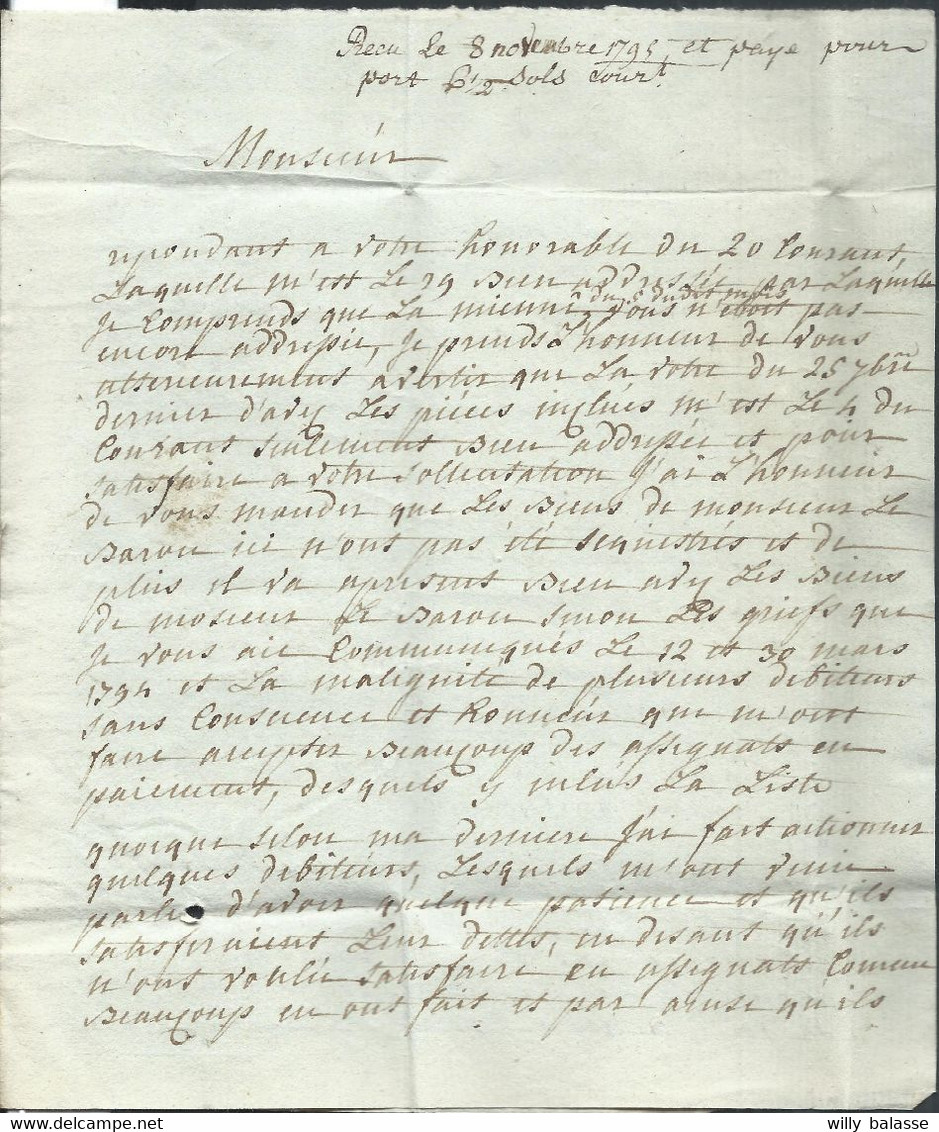 Recu Le 8 novembre 1795 et payé pour
port 6 1/2 sols court
Monsieur
repondant a votre honorable du 20 Courant,
Laquelle m'est Le 29 Bien addressée par Laquelle
je Comprends que La mienne du 8 dudit mois vous n'etoit pas
encore addressée, Je prends L'honneur de vous
atterieurement avertir que La votre du 25 7bre
dernier d'avy Les piéces inglués m'est Le 4 du
Courant seulement Bien addressée et pour
satisfaire a votre sollicitation J'ai L'honneur
de vous mander que Les Biens de monsieur Le
Baron ici n'ont pas été sequestrés et de
plus il va apresent Bien avy Les Biens
de mosieur Le Baron sinon Les griefs que
Je vous aie Communiqués Le 12 et 30 mars
1794 et La malignité de plusieurs debiteurs
sans Consience et honneur que m'ont
faire accepter Beaucoup des assignats en
paiement, desquels y inclus La Liste
quoique selon ma derniere J'ai fait actionner
quelques debiteurs, Lesquels m'ont venu
parler d'avoir quelque patience et qu'ils
satisferaient Leur dettes, en disant qu'ils
n'ont voulu satisfaire en assignats Comme
Beaucoup en ont fait et par cause qu'ils
willy balasse